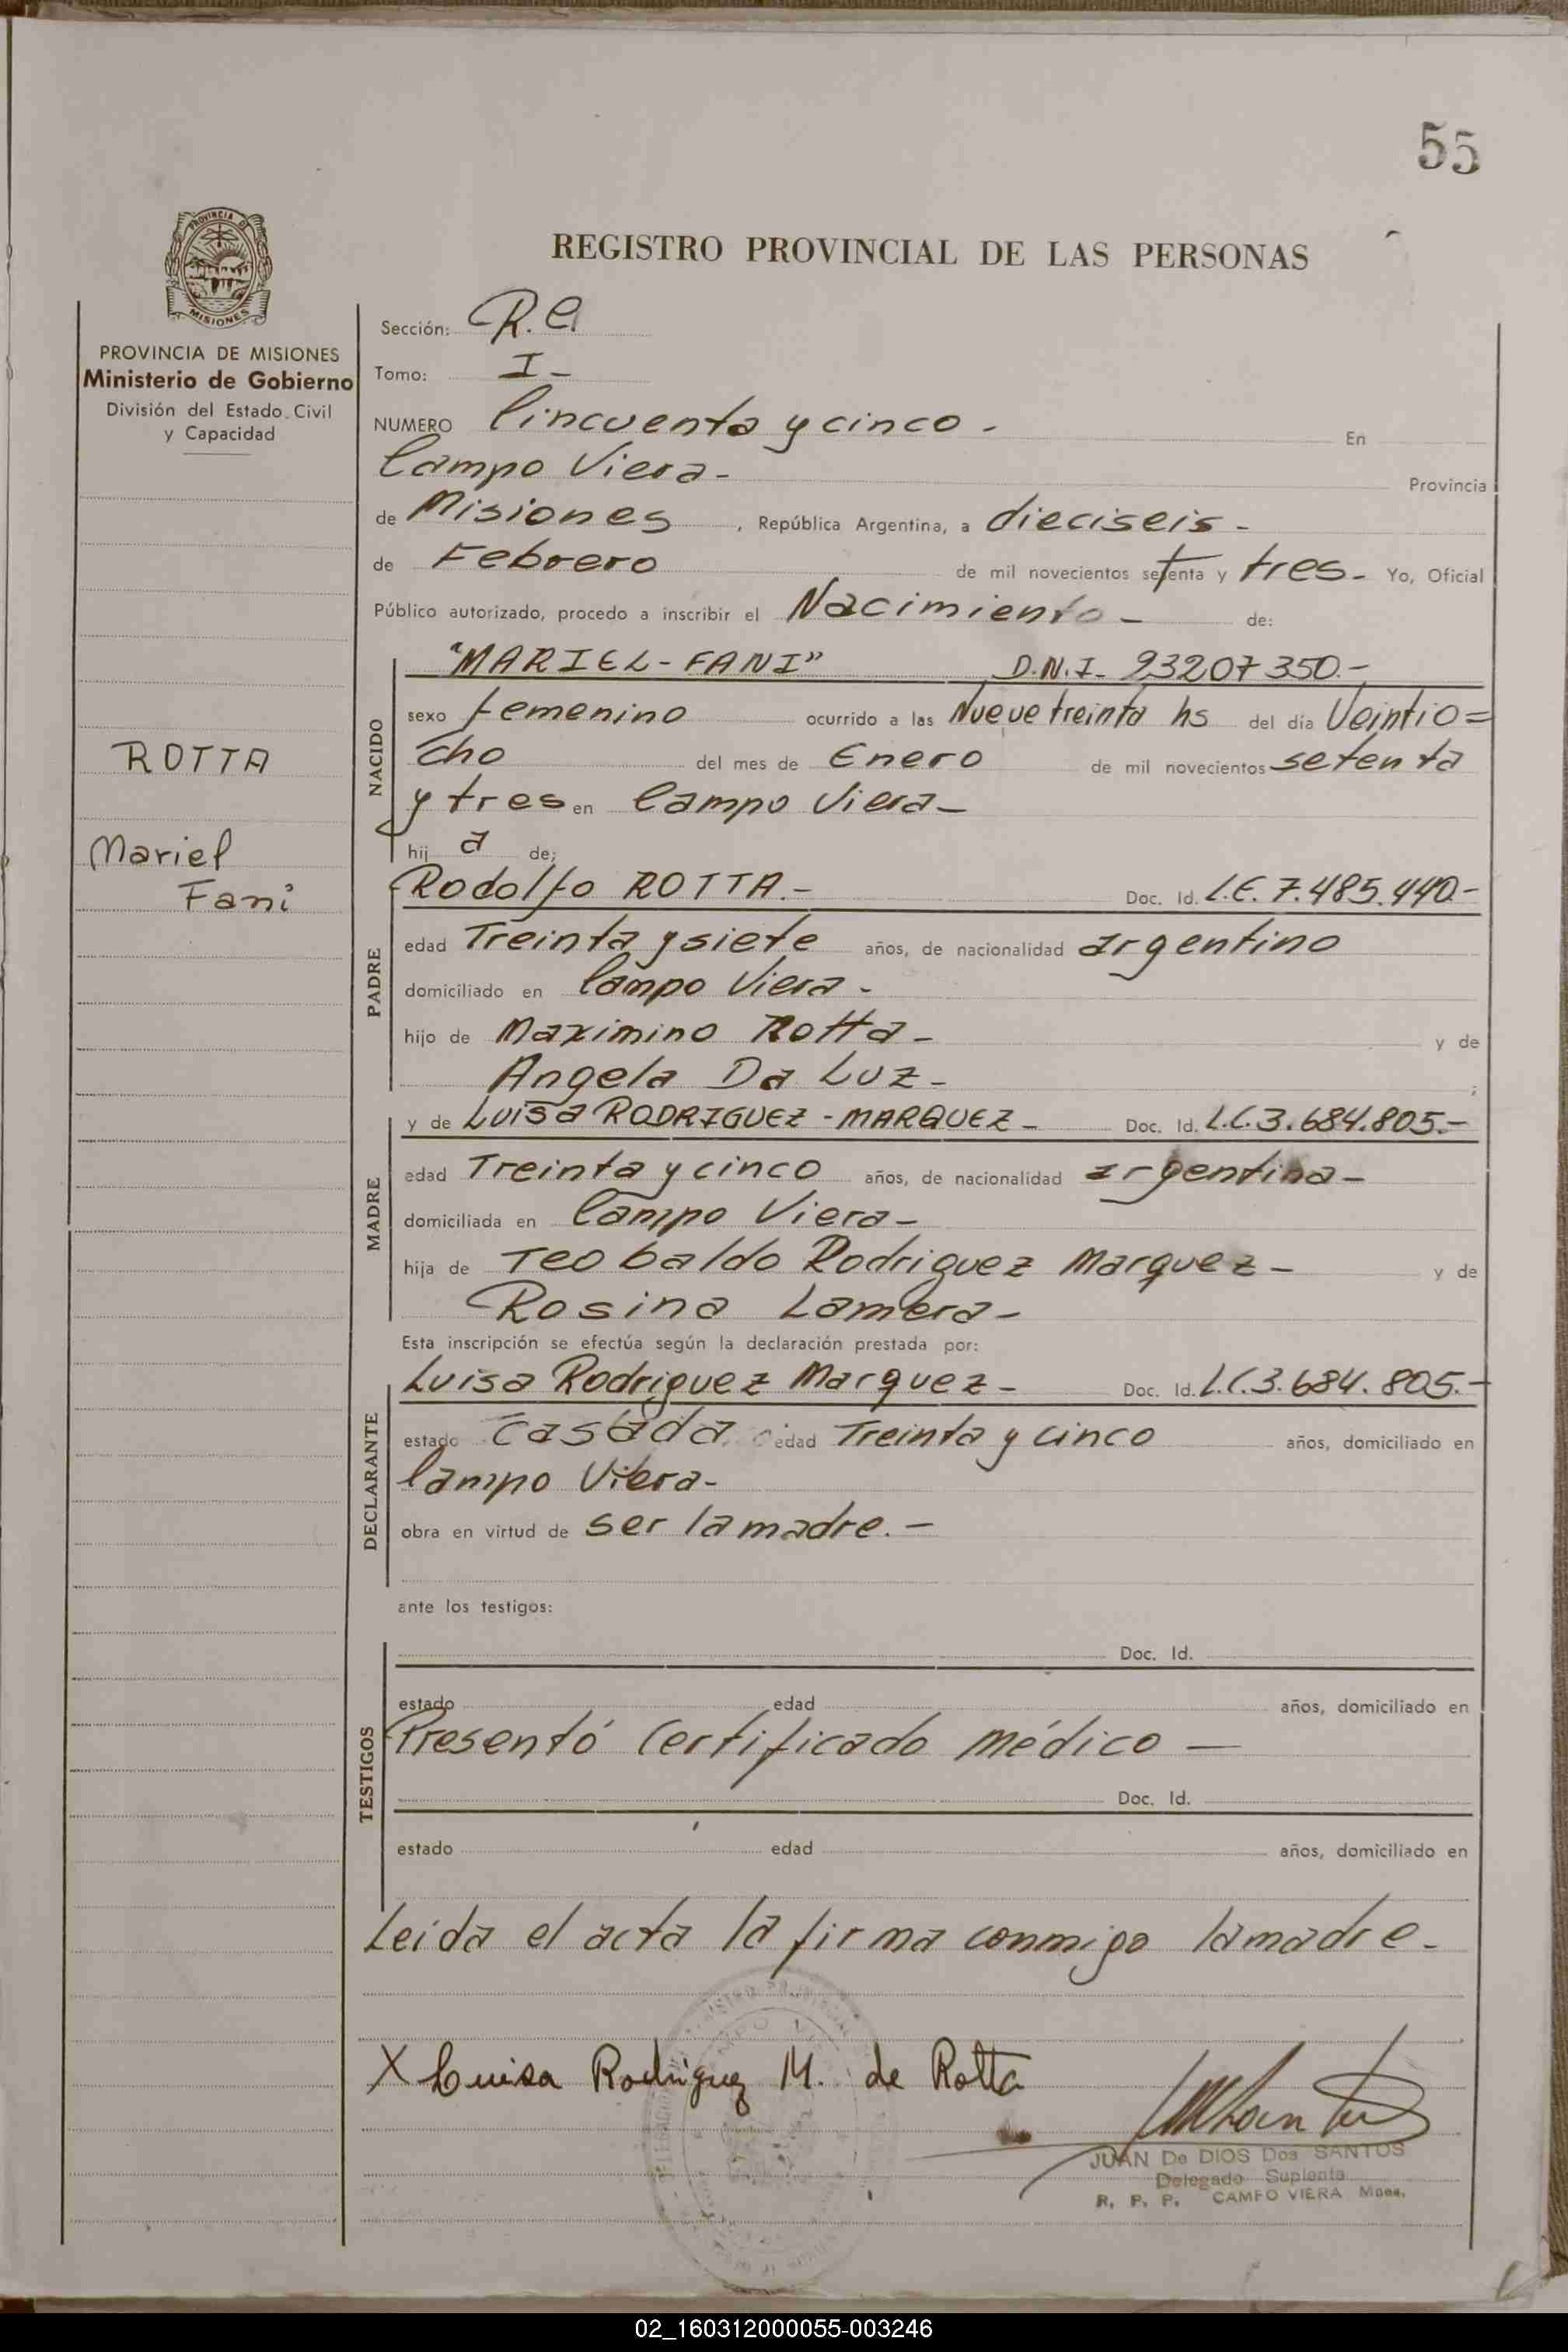 55
PROVINCIA DE
MISIONES
PROVINCIA DE MISIONES
Ministerio de Gobierno
División del Estado Civil
y Capacidad
ROTTA
Mariel
Fani
REGISTRO PROVINCIAL DE LAS PERSONAS
Sección: R.C.
Tomo: I-
NUMERO Cincuenta y cinco - En
Campo Viera- Provincia
de Misiones, República Argentina, a dieciseis-
de Febrero de mil novecientos setenta y tres- Yo, Oficial
Público autorizado, procedo a inscribir el Nacimiento- de:
NACIDO
"MARIEL-FANI" D.N.I- 23207350-
sexo femenino ocurrido a las Nueve treinta hs del día Veintio=
cho del mes de Enero de mil novecientos setenta
y tres en Campo Viera-
hija de;
PADRE
Rodolfo ROTTA.- Doc. Id. L.E. 7.485.440-
edad Treinta y siete años, de nacionalidad argentino
domiciliado en Campo Viera-
hijo de Maximino Rotta- y de
Angela Da Luz- ;
MADRE
y de LUISA RODRIGUEZ-MARQUEZ- Doc. Id. L.C. 3.684.805.-
edad Treinta y cinco años, de nacionalidad argentina-
domiciliada en Campo Viera-
hija de Teobaldo Rodriguez Marquez- y de
Rosina Lamera-
Esta inscripción se efectúa según la declaración prestada por:
DECLARANTE
Luisa Rodriguez Marquez- Doc. Id. L.C. 3.684.805.-
estado casada edad Treinta y cinco años, domiciliado en
Campo Viera-
obra en virtud de ser la madre.-
ante los testigos:
TESTIGOS
Doc. Id.
estado edad años, domiciliado en
Presentó Certificado médico-
Doc. Id.
estado edad años, domiciliado en
Leída el acta la firma conmigo la madre-
X Luisa Rodríguez M. de Rotta
JUAN De DIOS Dos SANTOS
Delegado Suplente
R. P. P. CAMPO VIERA Mnes.
02_160312000055-003246